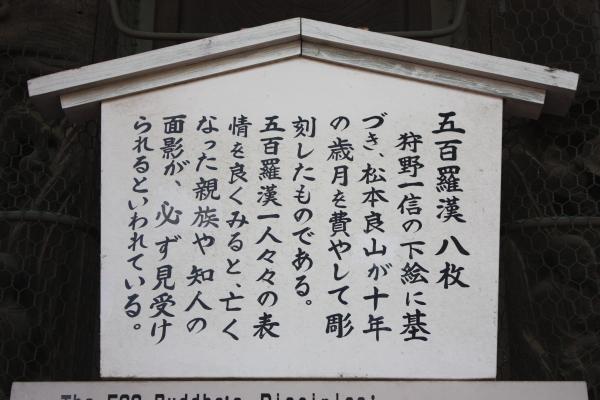 五百羅漢 八枚
狩野一信の下絵に基
づき、松本良山が十年
の歳月を費やして彫
刻したものである。
五百羅漢一人々々の表
情を良くみると、亡く
なった親族や知人の
面影が、必ず見受け
られるといわれている。
The 500 Buddha's Disciples'